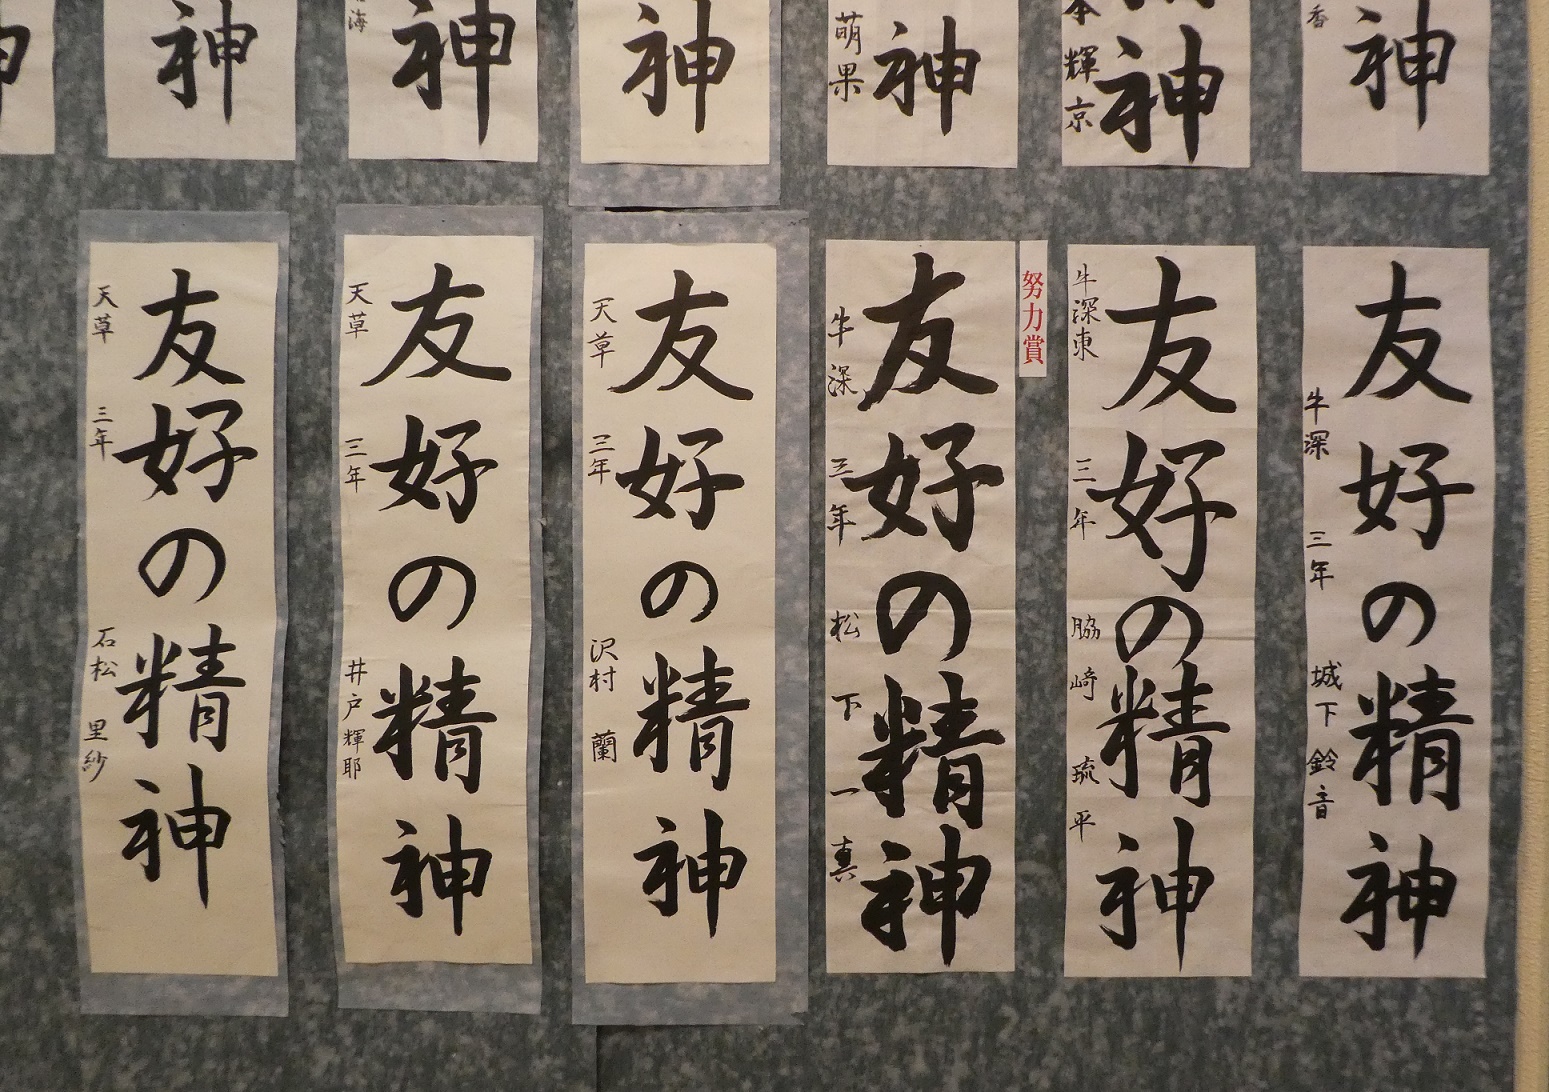 神
神
海
神
神
萌果
神
本輝京
神
香
友好の精神
天草 三年 石松 里紗
友好の精神
天草 三年 井戸 輝耶
友好の精神
天草 三年 沢村 蘭
努力賞
友好の精神
牛深 三年 松下 一真
友好の精神
牛深東 三年 脇崎 琉平
友好の精神
牛深 三年 城下 鈴音